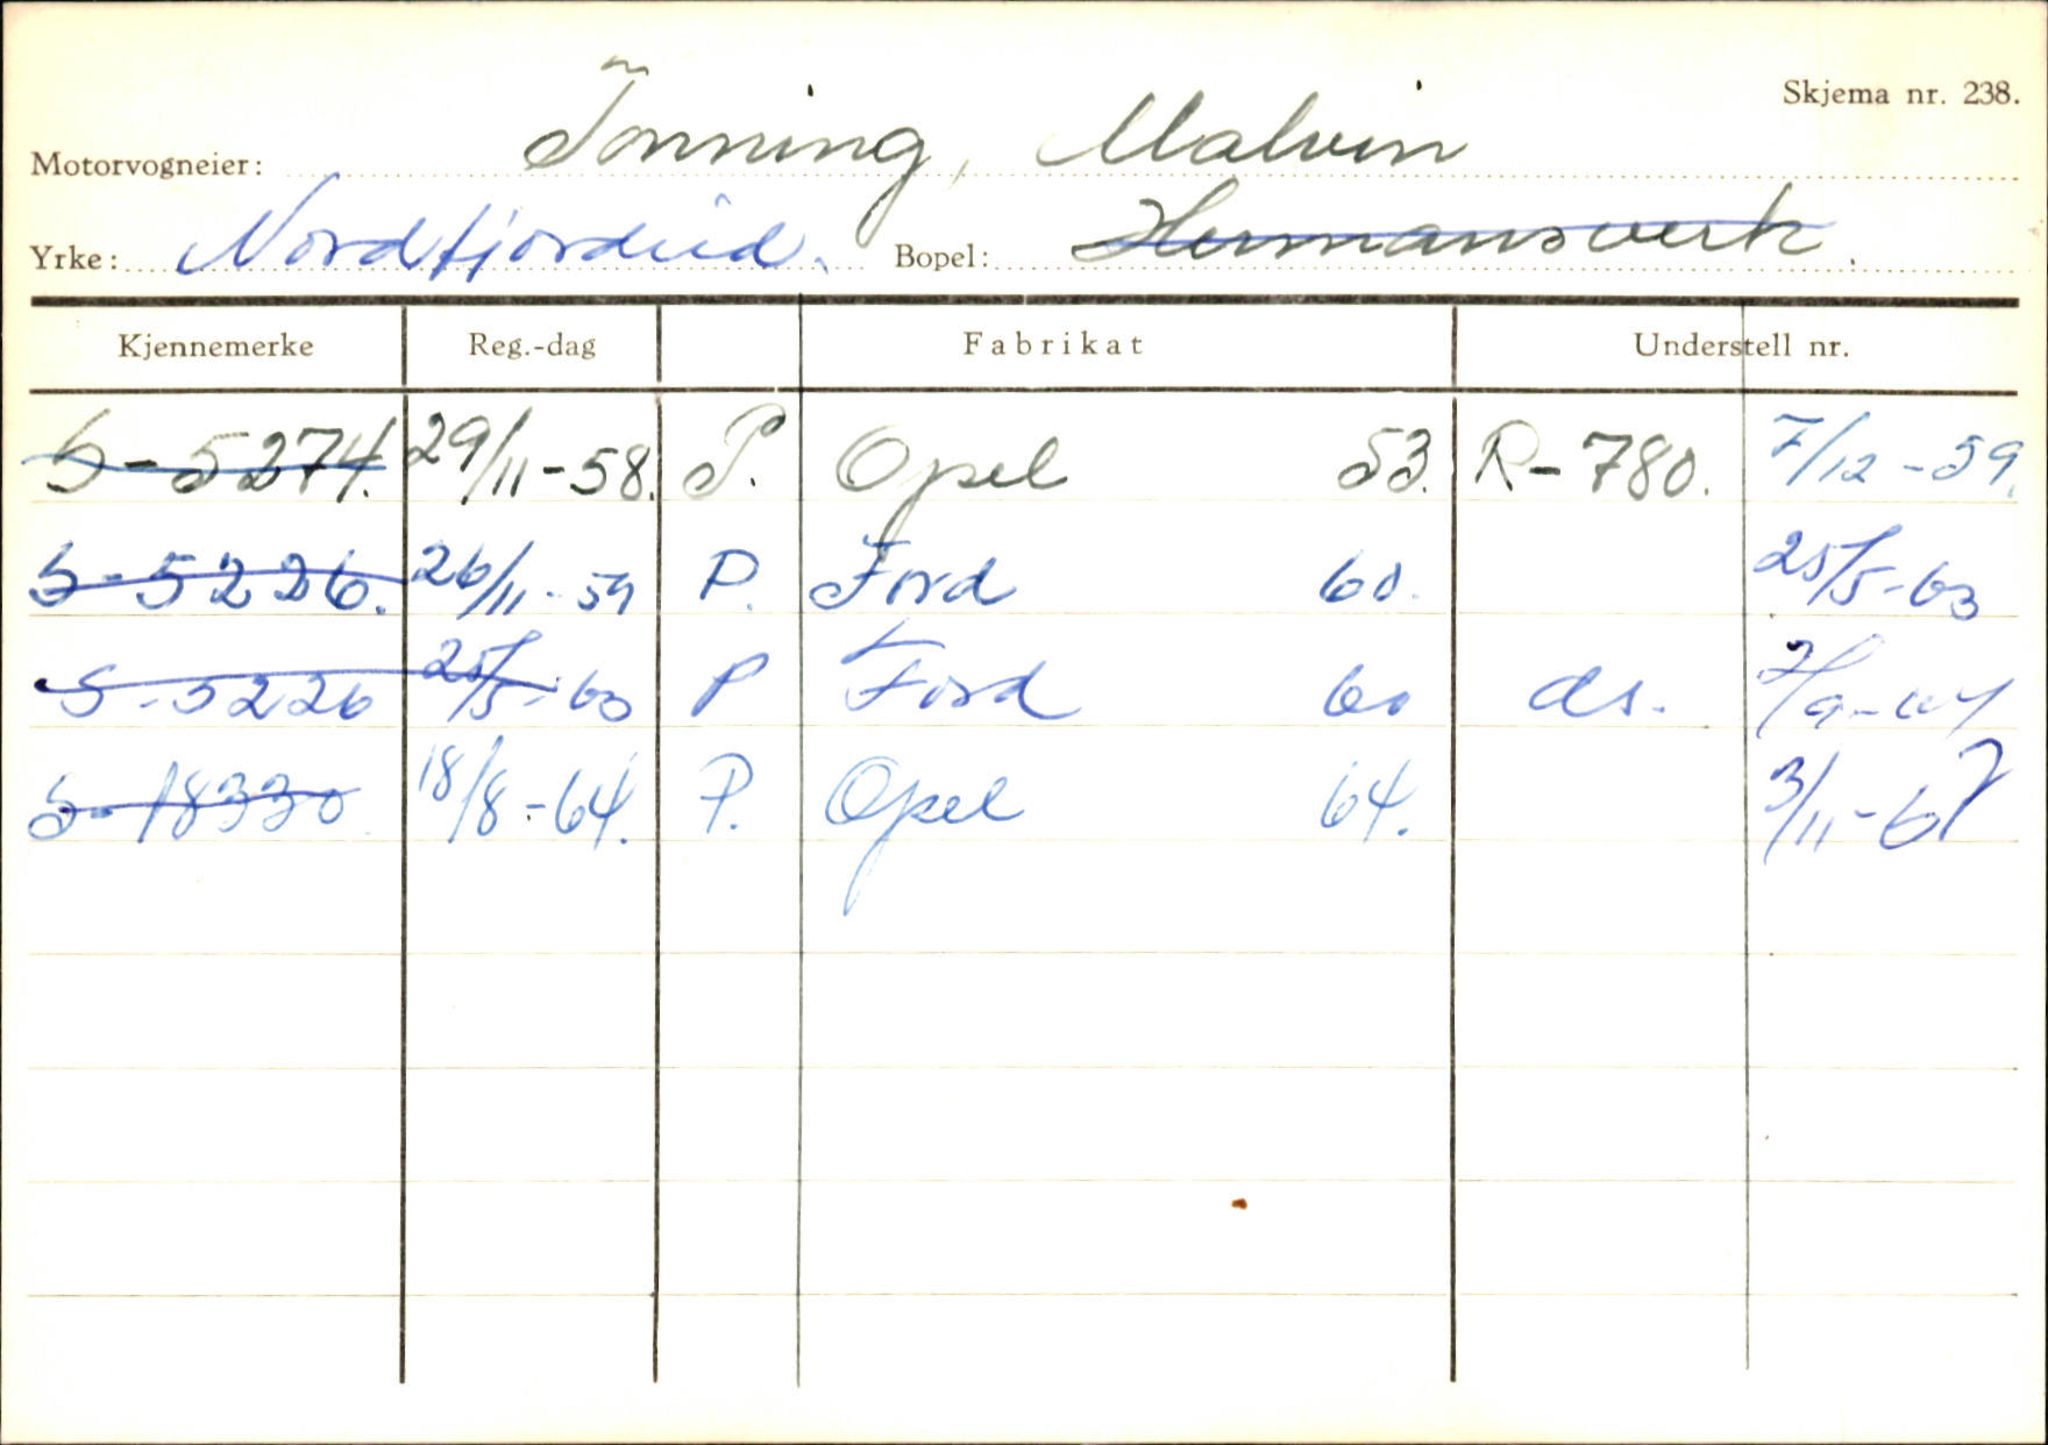 Skjema nr. 238.
Motorvogneier: Tonning, Malvin
Yrke: Nordfjordeid. Bopel: Hermansverk.
Kjennemerke Reg.-dag Fabrikat Understell nr.
S-5274. 29/11-58. P. Opel 53. R-780. 7/12-59.
S-5226. 26/11-59 P. Ford 60. 25/5-63
S-5226 25/5-63 P Ford 60 ds. 7/9-64
S-18330 18/8-64. P. Opel 64. 3/11-67